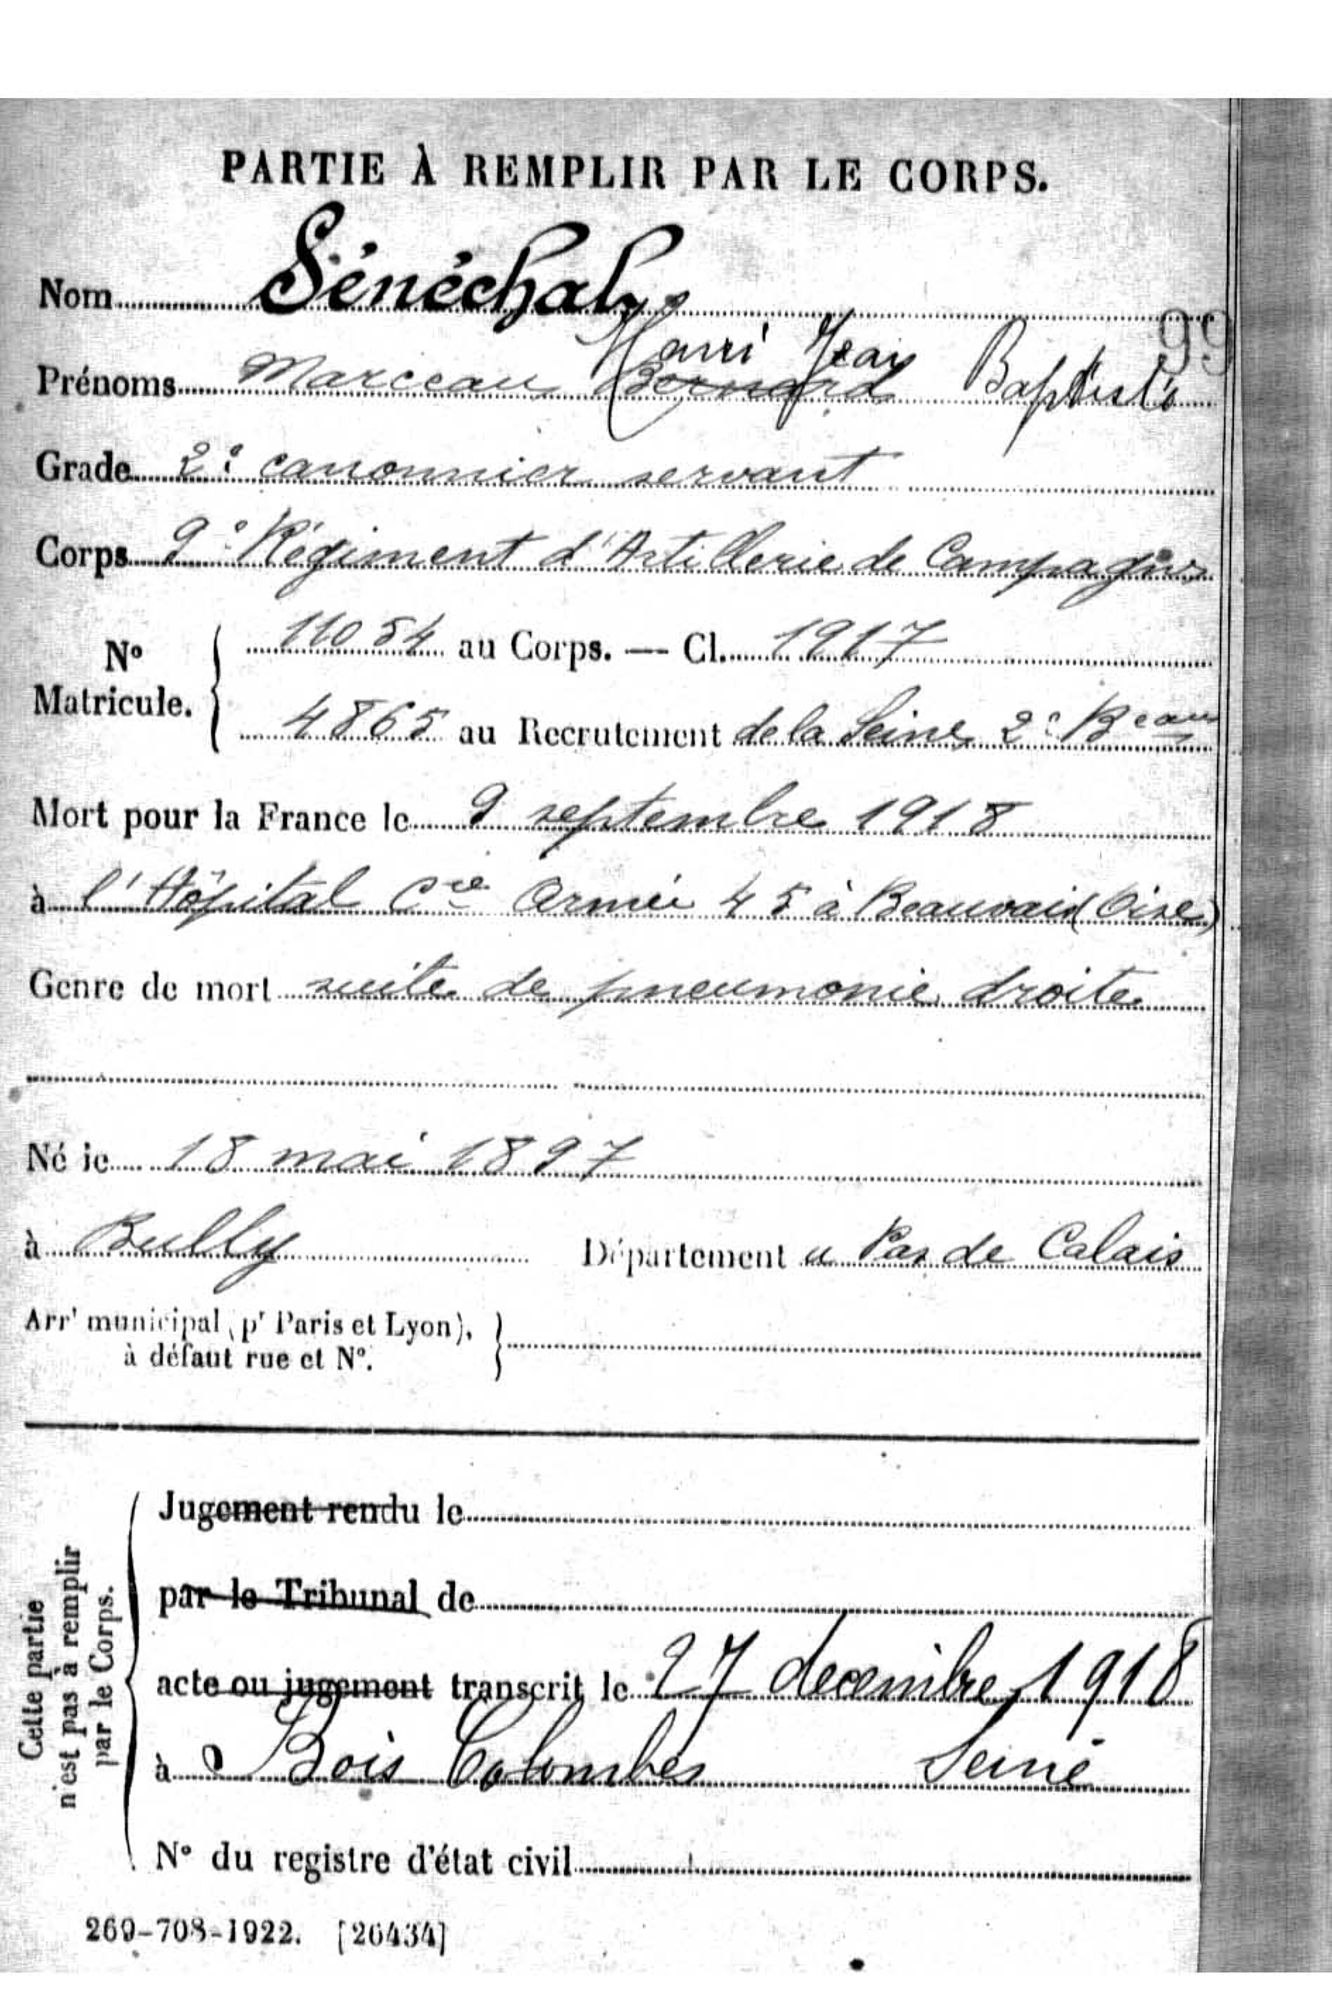 PARTIE À REMPLIR PAR LE CORPS.
Nom Sénéchal
99
Henri Jean Baptiste
Prénoms Marceau Bernard
Grade 2e canonnier servant
Corps 9e Régiment d'Artillerie de Campagne
No Matricule.
11054 au Corps. — Cl. 1917
4865 au Recrutement de la Seine 2e Beau
Mort pour la France le 9 septembre 1918
à l'Hôpital Cre Armée 45 à Beauvais (Oise)
Genre de mort suite de pneumonie droite
Né le 18 mai 1897
à Bully Département u Pas de Calais
Arrt municipal (pr Paris et Lyon),
à défaut rue et No.
Cette partie
n'est pas à remplir
par le Corps.
Jugement rendu le
par le Tribunal de
acte ou jugement transcrit le 27 decembre 1918
à Bois Colombes Seine
No du registre d'état civil
269-708-1922. [26434]